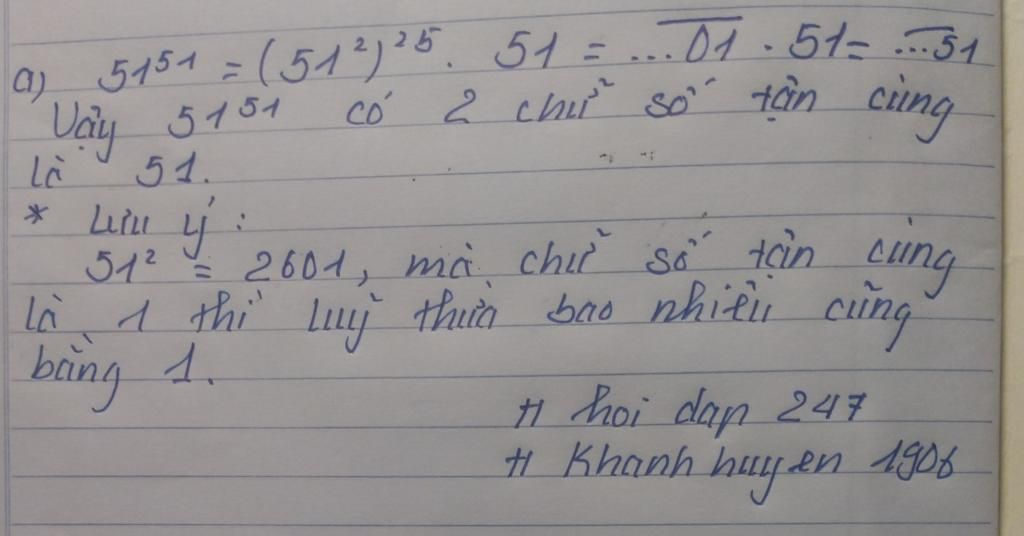 a) 51⁵¹ = (51²)²⁵ . 51 = ...01 . 51 = ...51
Vậy 51⁵¹ có 2 chữ số tận cùng
là 51.
* Lưu ý :
51² = 2601, mà chữ số tận cùng
là 1 thì luỹ thừa bao nhiêu cũng
bằng 1.
# hoi dap 247
# Khanh huyen 1906